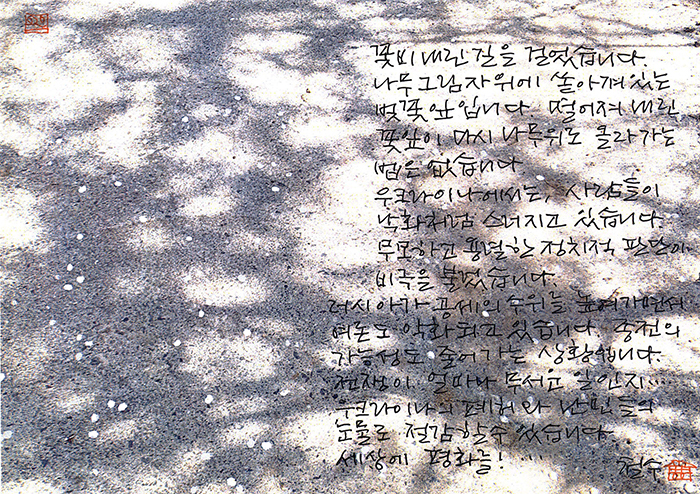 꽃비 내린 길을 걸었습니다.
나무 그림자 위에 쏟아져 있는
벚꽃 잎입니다. 떨어져 내린
꽃잎이 다시 나무 위로 올라가는
법은 없습니다
우크라이나에서는, 사람들이
낙화처럼 스러지고 있습니다.
무모하고 용렬한 정치적 판단이
비극을 불렀습니다.
러시아가 공세의 수위를 높여가면서
여론도 악화되고 있습니다. 종전의
가능성도 줄어가는 상황입니다.
전쟁이 얼마나 무서운 일인지....
우크라이나의 폐허와 난민들의
눈물로 절감할 수 있습니다.
세상에 평화를! ...
철수